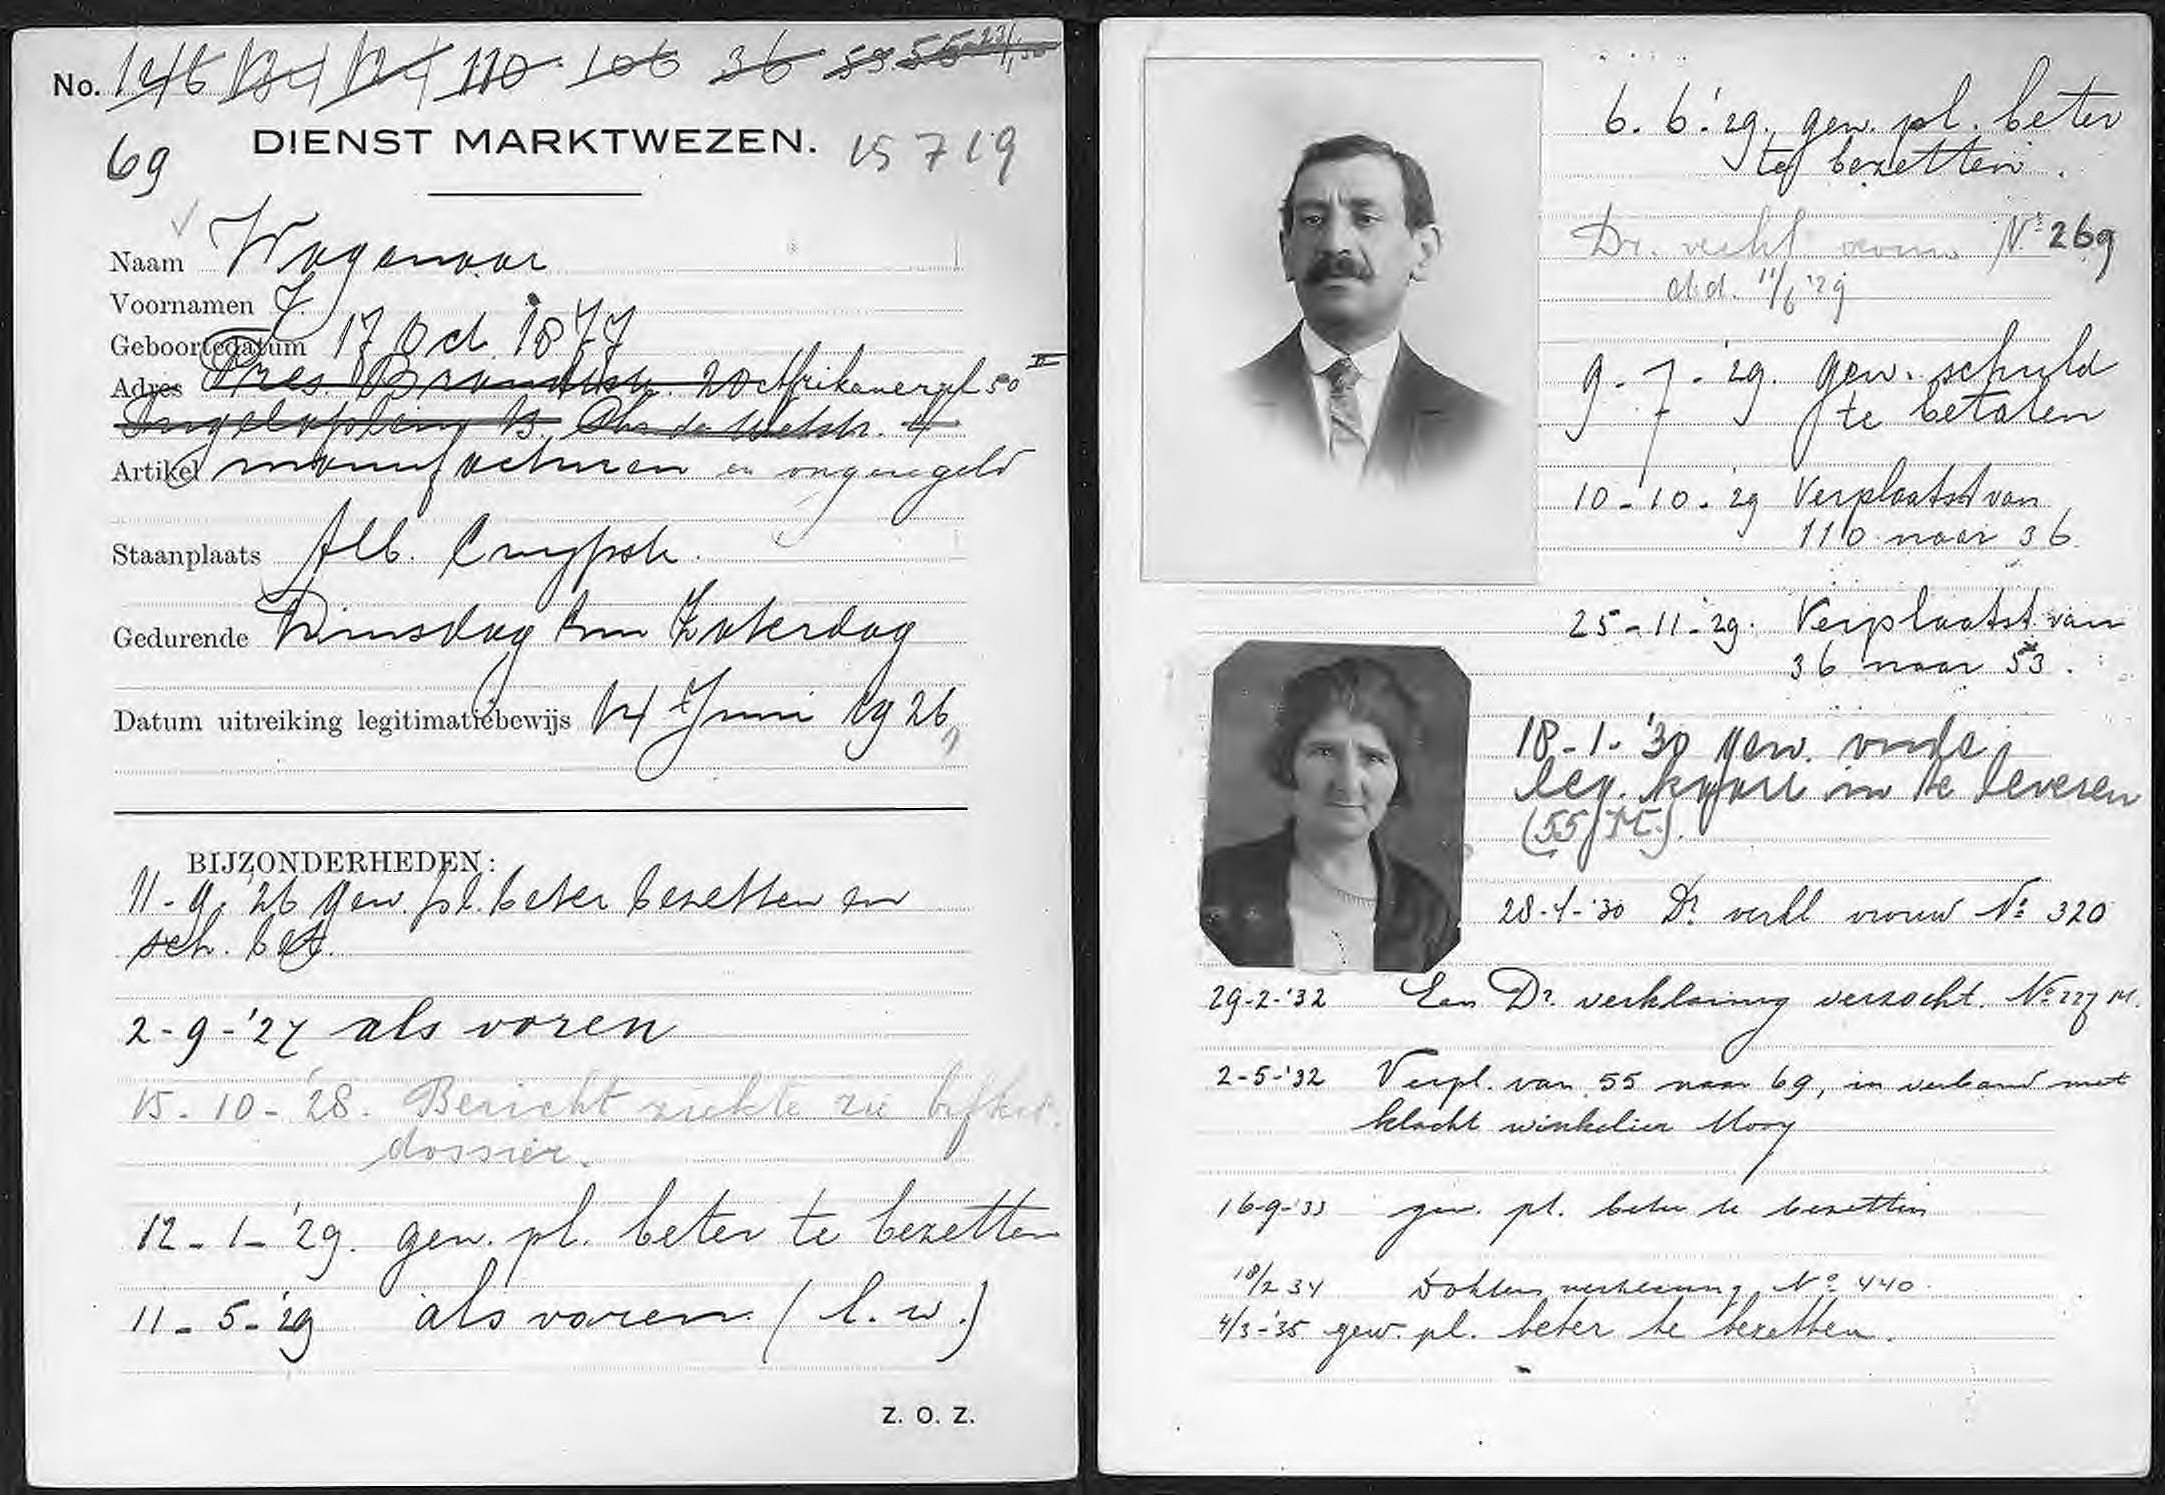 No. 146 134 124 110 106 36 53 55
69 DIENST MARKTWEZEN. 15719
Naam Wagenaar
Voornamen J.
Geboortedatum 17 Oct. 1877
Adres Pres. Brandstr. 20 Afrikanerpl 50 II
Chr de Wetstr. 4
Artikel manufacturen en ongeregeld
Staanplaats Alb. Cuypstr.
Gedurende Dinsdag t/m Zaterdag
Datum uitreiking legitimatiebewijs 14 Juni 1926
BIJZONDERHEDEN:
11-9-'26 gew. pl. beter bezetten en
sch. bet.
2-9-'27 als voren
15-10-'28. Bericht ziekte zie
dossier.
12-1-'29. gew. pl. beter te bezetten
11-5-'29 als voren (l.w.)
Z. O. Z.
6.6.'29. gew. pl. beter
te bezetten.
Dr. verkl vrouw No 269
d.d. 11/6 '29
9-7-'29. gew. schuld
te betalen
10-10-'29 Verplaatst van
110 naar 36
25-11-'29. Verplaatst van
36 naar 53.
18-1-'30 gew. oude
leg. kaart in te leveren
(55
28-1-'30 Dr verkl vrouw No 320
29-2-'32 Een Dr verklaring verzocht. No 227 M.
2-5-'32 Verpl. van 55 naar 69, in verband met
klacht winkelier Mooy
16-9-'33 gew. pl. beter te bezetten
18/2 34 Dokters verklaring No 440
4/3-'35 gew. pl. beter te bezetten.